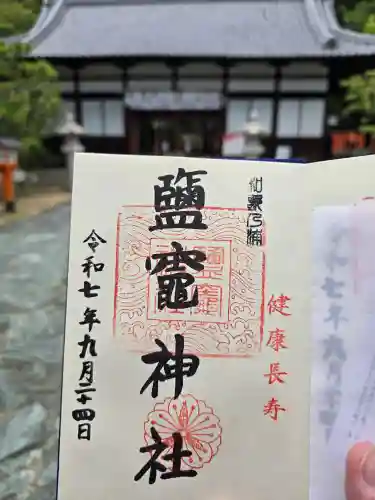 和歌乃浦
健康長寿
鹽竈神社
令和七年九月二十四日